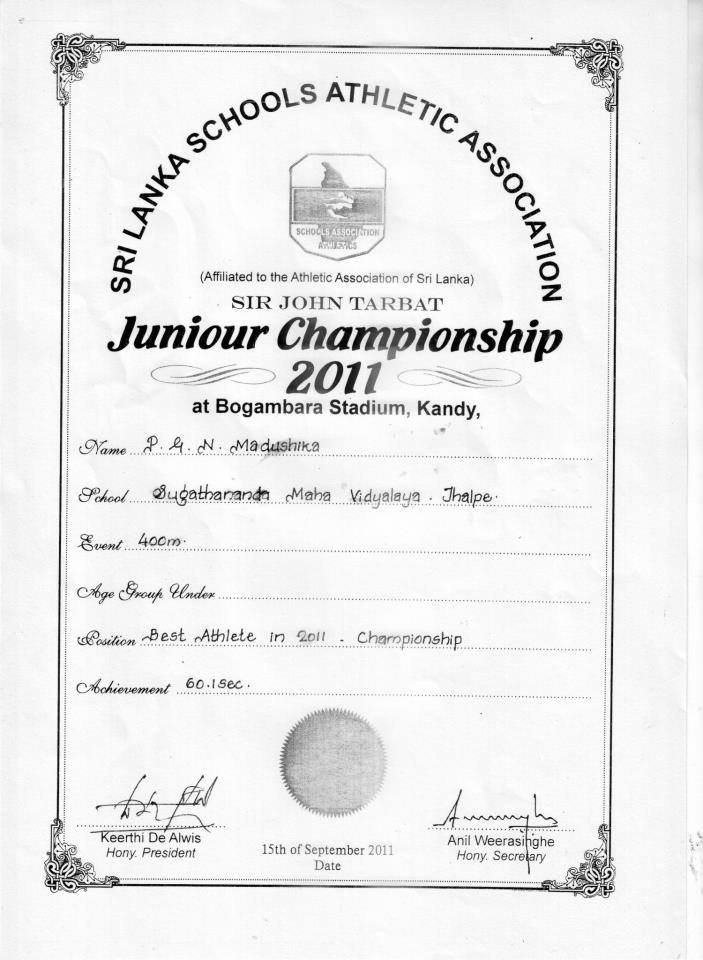 SRI LANKA SCHOOLS ATHLETIC ASSOCIATION
SCHOOLS ASSOCIATION
ATHLETICS
(Affiliated to the Athletic Association of Sri Lanka)
SIR JOHN TARBAT
Juniour Championship
2011
at Bogambara Stadium, Kandy,
Name P. G. N. Madushika
School Sugathananda Maha Vidyalaya. Ihalpe.
Event 400m.
Age Group Under
Position Best Athlete in 2011 - Championship
Achievement 60.1sec.
Keerthi De Alwis
Hony. President
15th of September 2011
Date
Anil Weerasinghe
Hony. Secretary